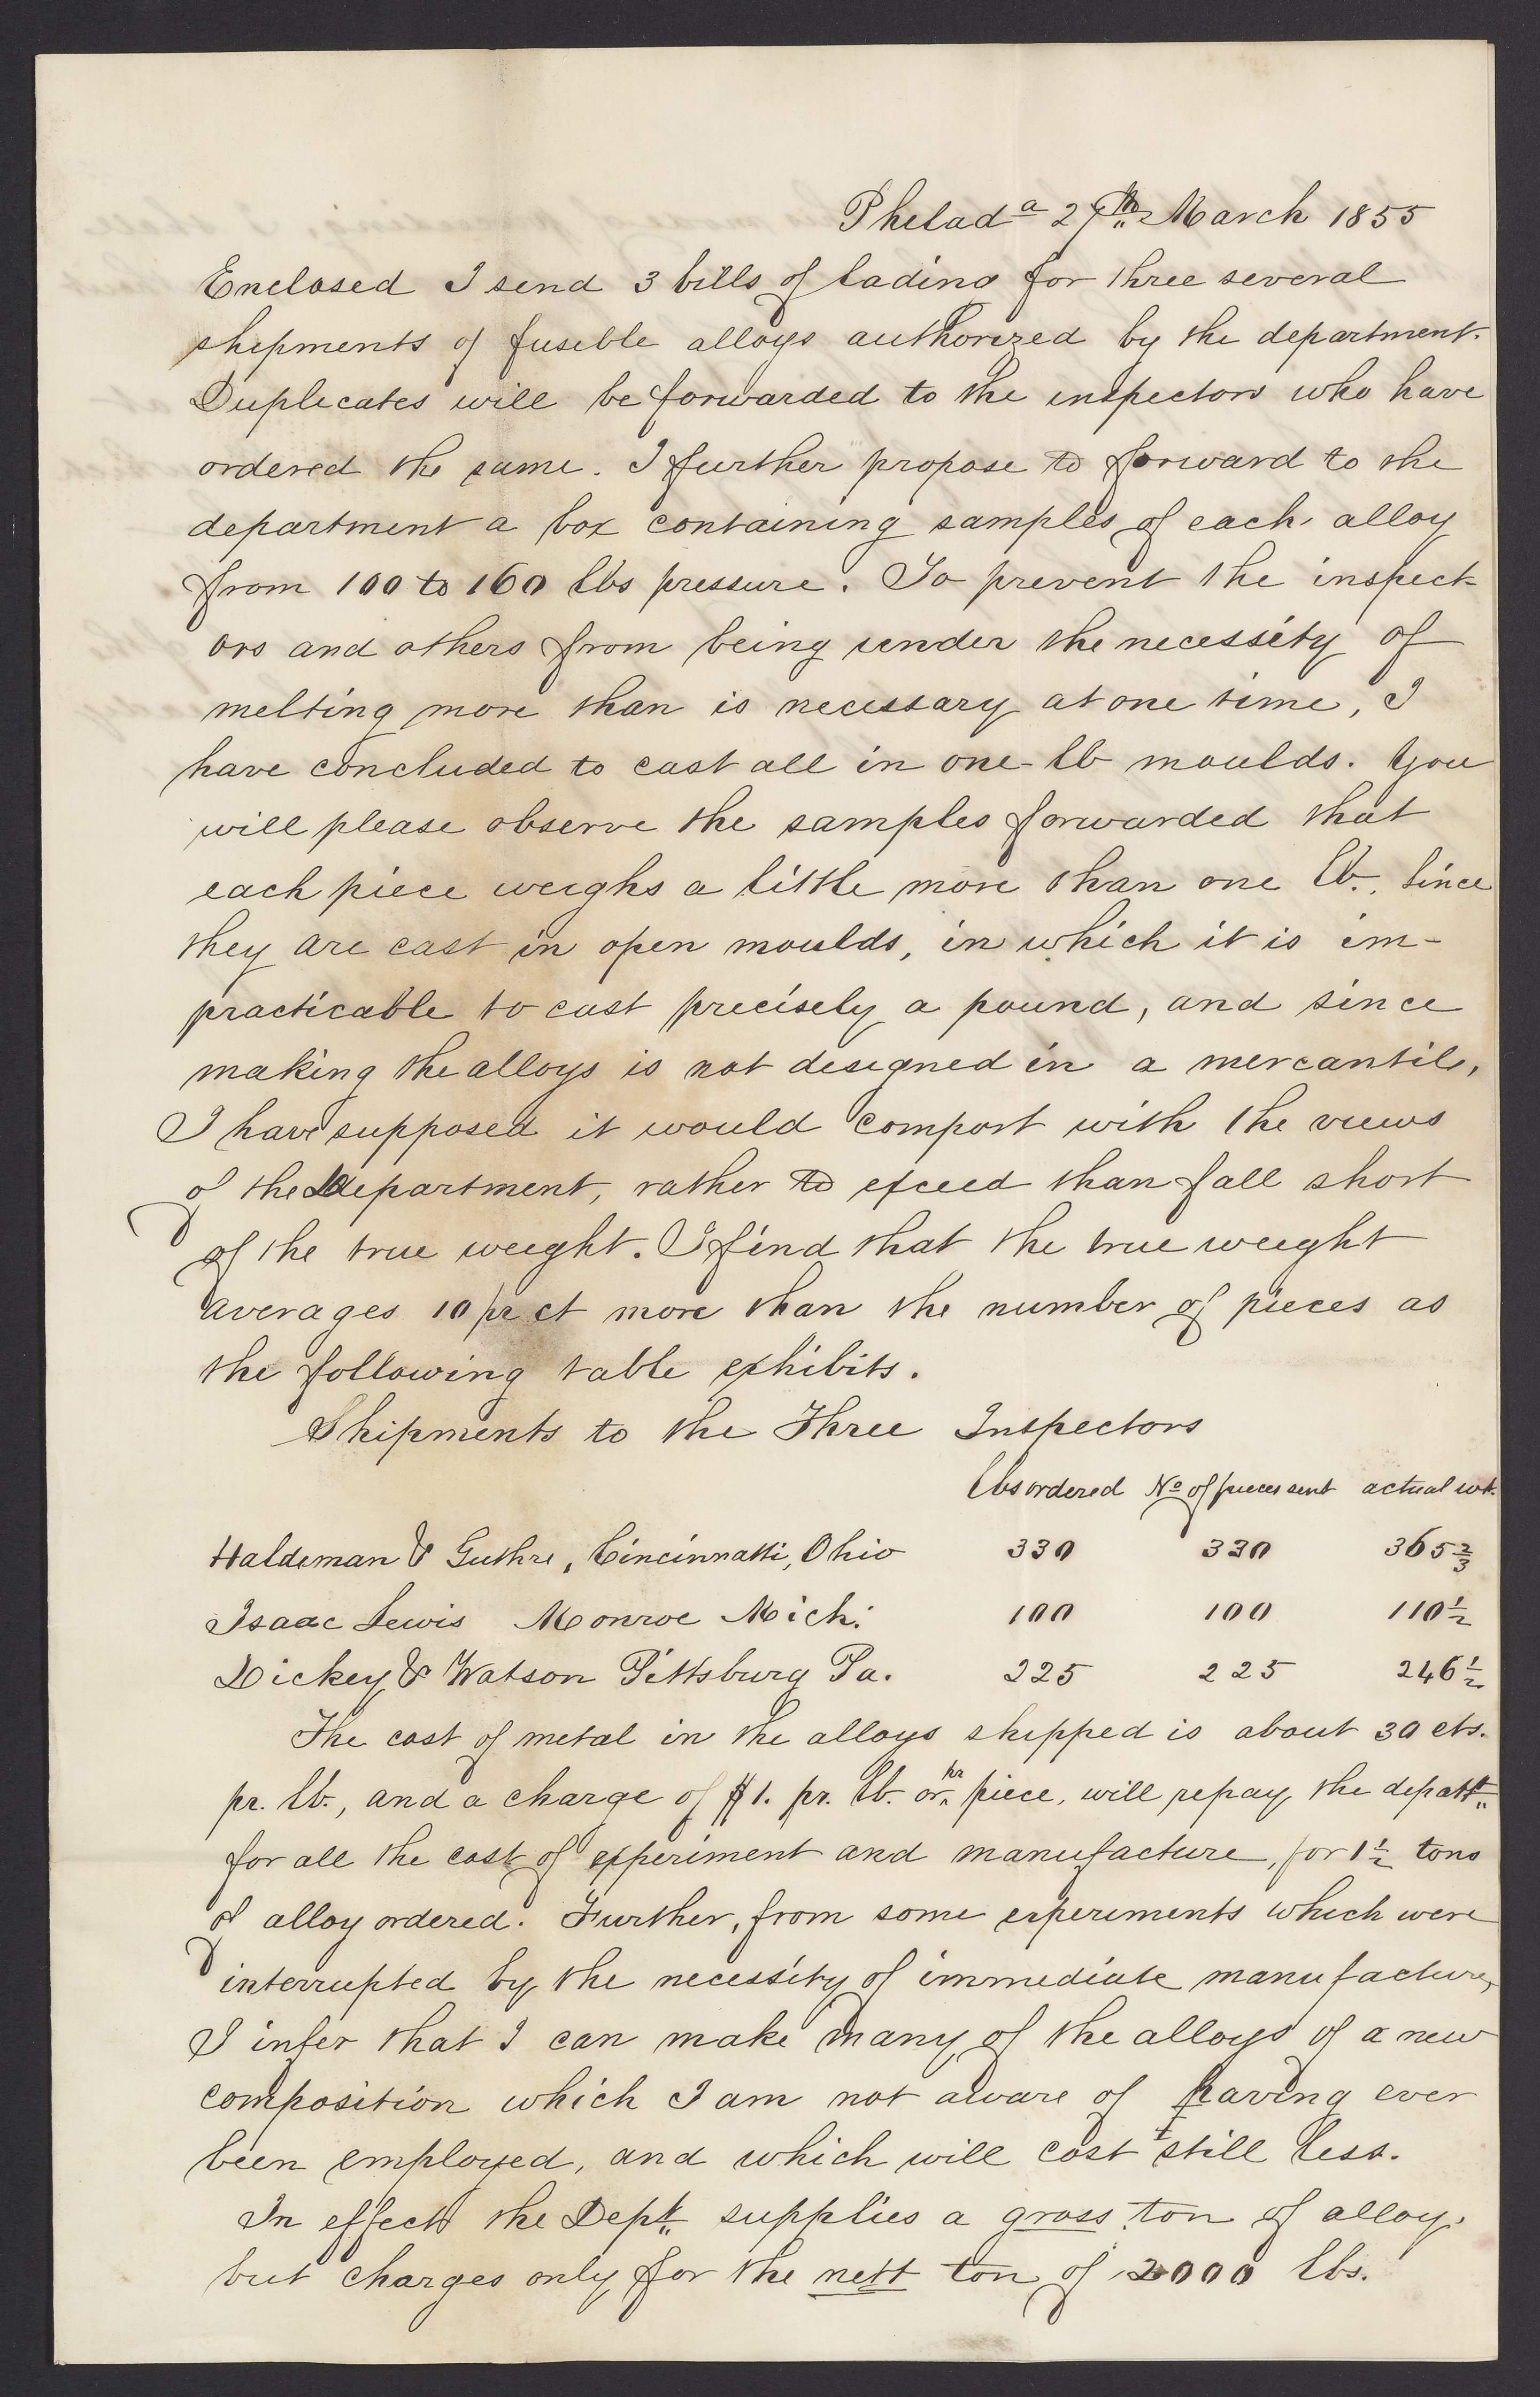 Philad^a 27th March 1855
Enclosed I send 3 bills of lading for three several
shipments of fusible alloys authorized by the department.
Duplicates will be forwarded to the inspectors who have
ordered the same. I further propose to forward to the
department a box containing samples of each alloy
from 100 to 160 lbs pressure. To prevent the inspect-
ors and others from being under the necessity of
melting more than is necessary at one time, I
have concluded to cast all in one-lb moulds. You
will please observe the samples forwarded that
each piece weighs a little more than one lb. Since
they are cast in open moulds, in which it is im-
practicable to cast precisely a pound, and since
making the alloys is not designed in a mercantile,
I have supposed it would comport with the views
of the Department, rather to exceed than fall short
of the true weight. I find that the true weight
averages 10 pr ct more than the number of pieces as
the following table exhibits.
Shipments to the Three Inspectors
lbs ordered No of pieces sent actual wt.
Haldeman & Guthre, Cincinnatti, Ohio 330 330 365 2/3
Isaac Lewis Monroe Mich. 100 100 110 1/2
Dickey & Watson Pittsburg Pa. 225 225 246 1/2
The cost of metal in the alloys shipped is about 30 cts.
pr. lb., and a charge of $1. pr. lb. or pr piece, will repay the depatt
for all the cost of experiment and manufacture, for 1 1/2 tons
of alloy ordered. Further, from some experiments which were
interrupted by the necessity of immediate manufacture,
I infer that I can make many of the alloys of a new
composition which I am not aware of having ever
been employed, and which will cost still less.
In effect the Dept. supplies a gross ton of alloy.
but charges only for the nett ton of 2000 lbs.